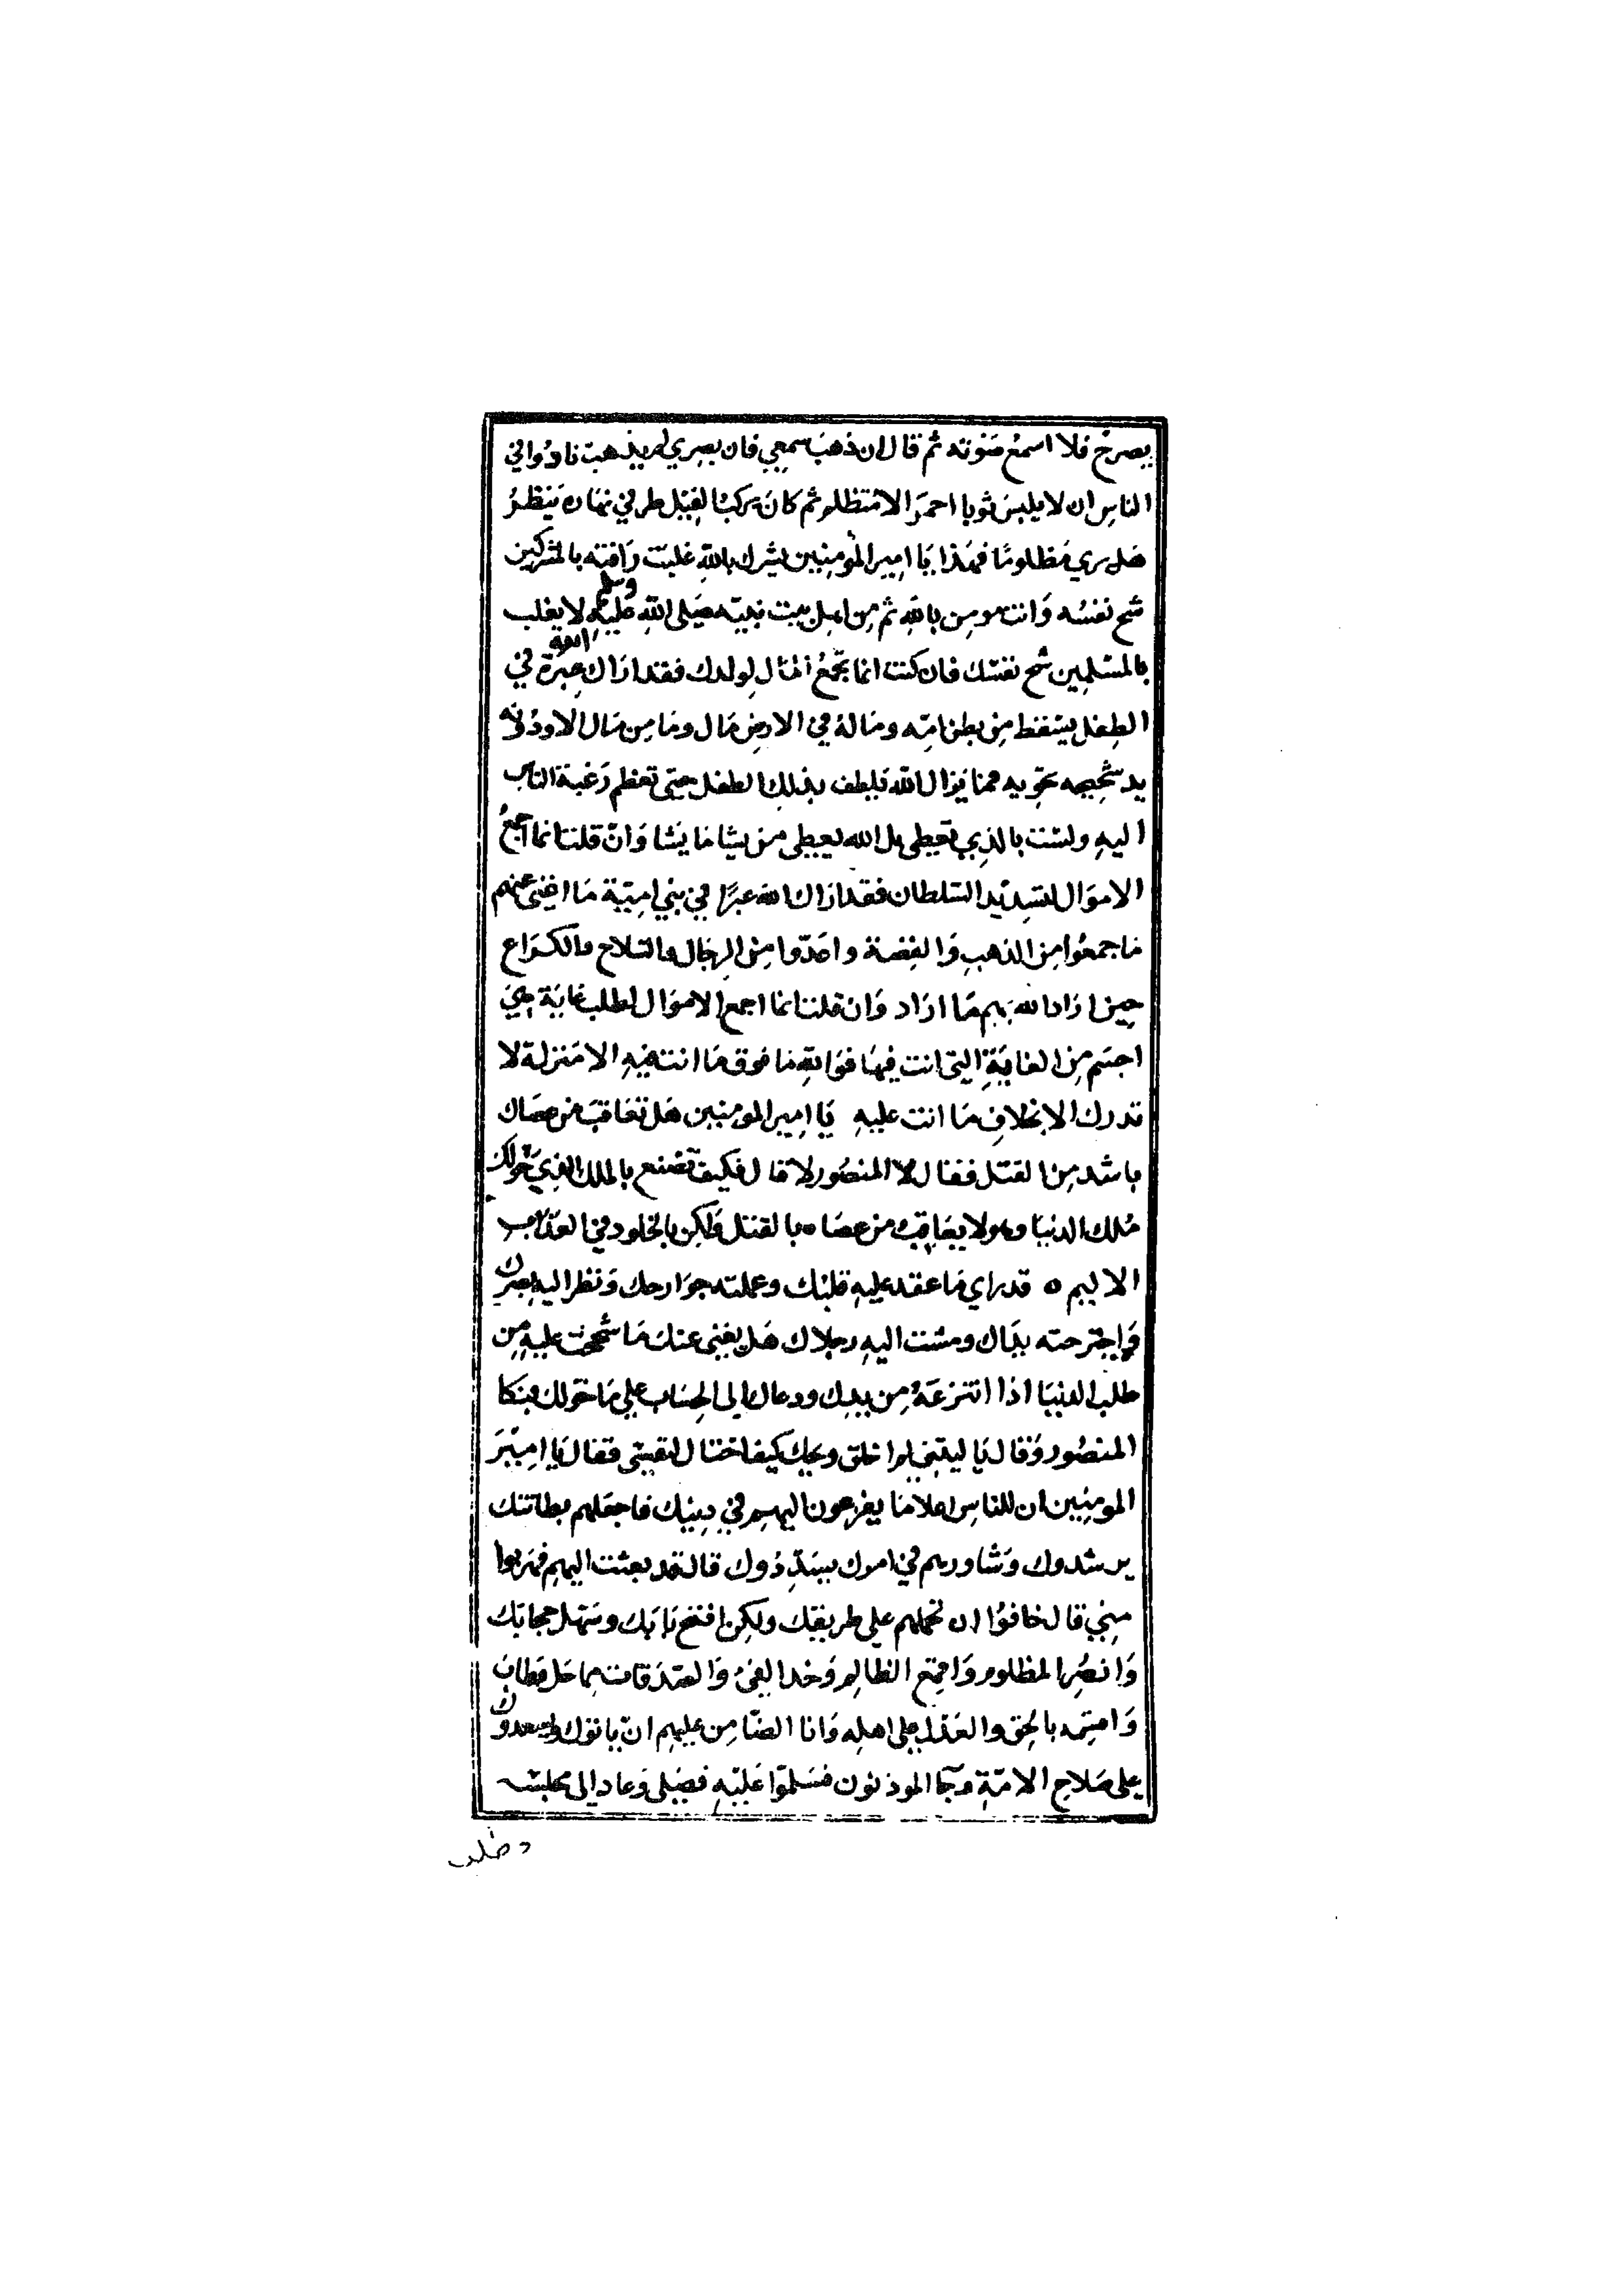 يصرخ فلا اسمع صوته ثم قال ان ذهب سمعي فان بصري لم يذهب نادوا في
الناس ان لا يلبس ثوبا احمر الا متظلم ثم كان يركب الفيل طرفي نهاره ينظر
هل يري مظلوما فهذا يا امير المؤمنين يشرك بالله غلبت رافته بالمشركين
شح نفسه وانت مومن بالله ثم من اهل بيت نبيه صلى الله عليه وسلم لا يغلب
بالمسلمين شح نفسك فان كنت انما تجمع المال لولدك فقد اراك الله عبرة في
الطفل يسقط من بطن امه وما له في الارض مال وما من مال الا ودونه
يد شحيحه تحويه فما يزال الله يلطف بذلك الطفل حتى تعظم رغبة الناس
اليه ولست بالذي تعطى بل الله يعطى من يشا ما يشا وان قلت انما اجمع
الاموال لتسديد السلطان فقد اراك الله عبرا في بني امية ما اغنى عنهم
ما جمعوا من الذهب والفضة واعدوا من الرجال والسلاح والكراع
حين اراد الله بهم ما اراد وان قلت انما اجمع الاموال لطلب غاية هي
اجسم من الغاية التي انت فيها فوالله ما فوق ما انت فيه الا منزلة لا
تدرك الا بخلاف ما انت عليه يا امير المومنين هل تعاقب من عصاك
باشد من القتل فقال لا المنصور لا قال فكيف تصنع بالملك الذي خولك
ملك الدنيا وهو لا يعاقب من عصاه بالقتل ولكن بالخلود في العذاب
الاليم ٥ قد راي ما عقد عليه قلبك وعملته جوارحك ونظر اليه بصرك
واجترحته يداك ومشت اليه رجلاك هل يغنى عنك ما شححت عليه من
طلب الدنيا اذا انتزعه من يدك ودعاك الى الحساب علي ما خولك فبكا
المنصور وقال يا ليتني لم اخلق ويحك كيف احتال لنفسى فقال يا امير
المومنين ان للناس اعلاما يفزعون اليهم في دينك فاجعلهم بطانتك
يرشدوك وشاورهم في امرك يسددوك قال قد بعثت اليهم فهربوا
مني قال خافوا ان تحملهم علي طريقتك ولكن افتح بابك وسهل حجابك
وانصر المظلوم واقمع الظالم وخذ الفئ والصدقات مما حل وطاب
واقسمه بالحق والعدل على اهله وانا الضامن عليهم ان ياتوك ويسعدوك
علي صلاح الامة وجا الموذنون فسلموا عليه فصلى وعاد الى مجلسه
وطلب